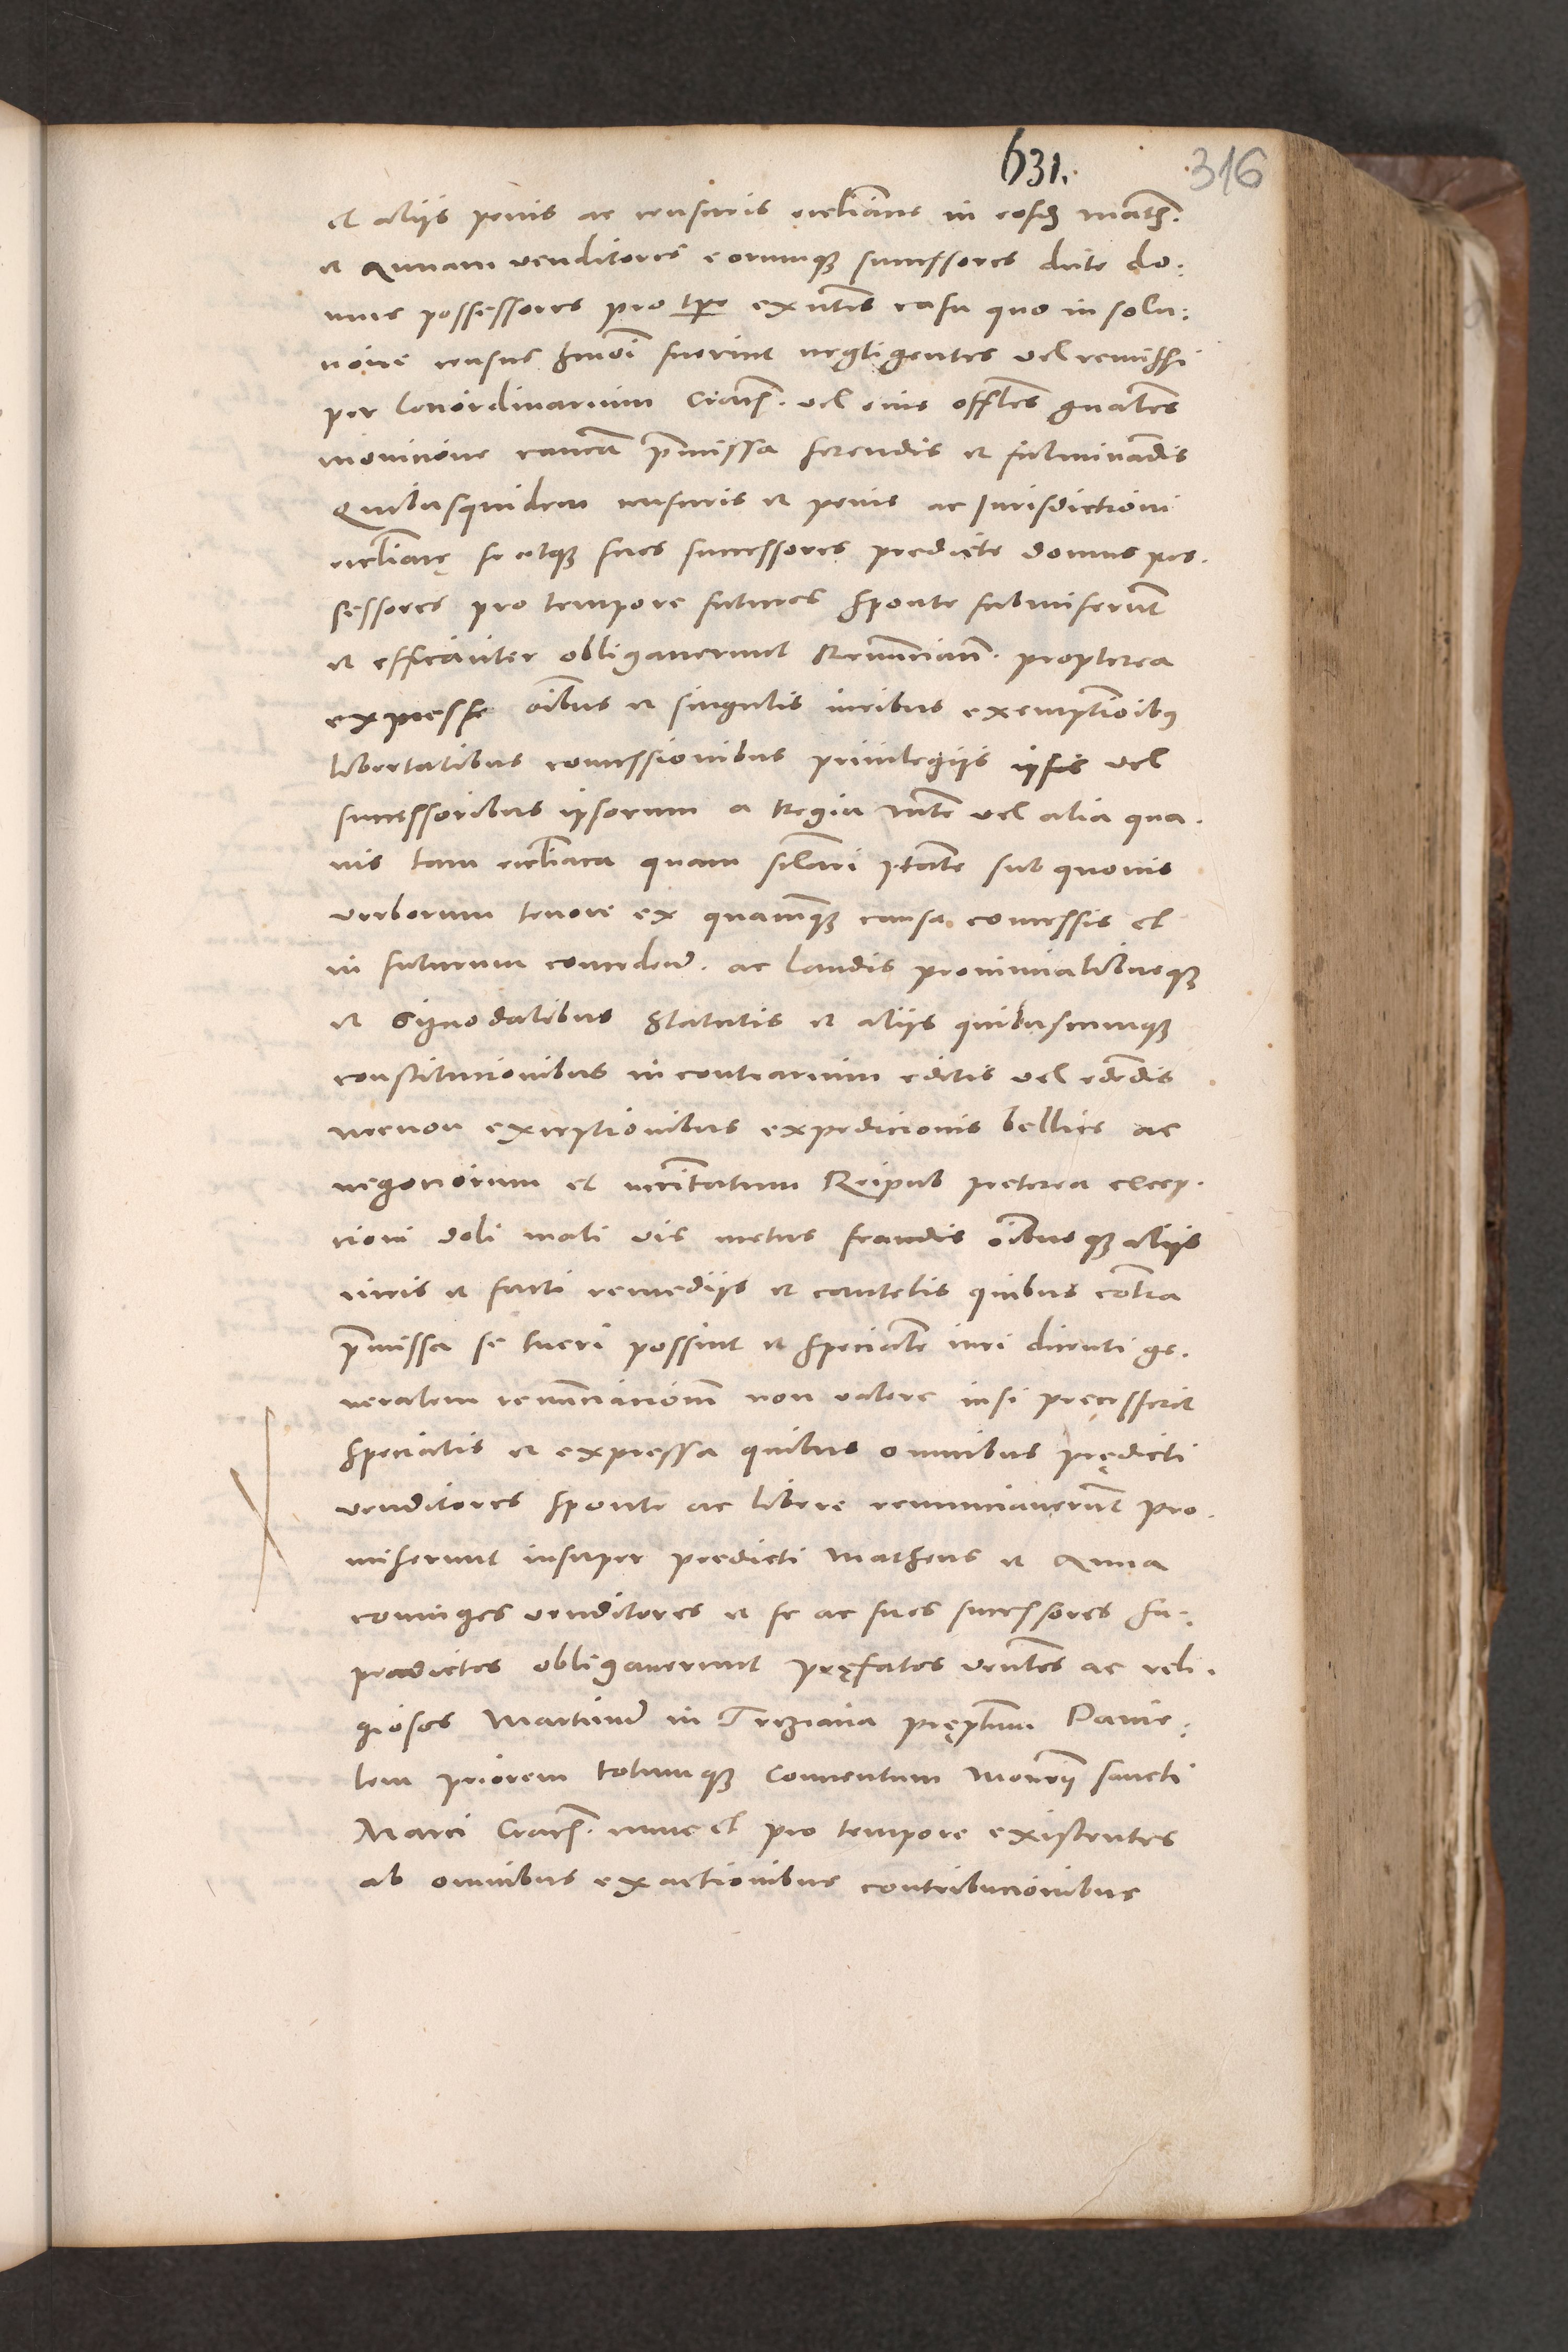 631.
316
et aliis penis ac censuris ecclīanis in eosdē Math.
et Annam venditores eorumq̃ successores dicte do:
mus possessores pro tpe exn̄tes casu quo in solu:
cione census hmōi fuerint negligentes vel remissi
per loci ordinarium Cracn̄. vel eius offles gnāles
monicione canocā p̄missa ferendis et fulminādis
Quibusquidem censuris et penis ac Jurisdictioni
eccliaicę se atq̃ suos successores predicte domus pos.
sessores pro tempore futuros sponte submiserūt
et efficaciter obligaverunt Renuncian̄. propterea
expresse oībus et singulis iuribus exemptioībus
libertatibus concessionibus privilegiis ipsis vel
successoribus ipsorum a Regia mte vel alia qua.
vis tam eccliaca quam sclāri ptāte sub quovis
verborum tenore ex quacunq̃ causa concessis et
in futurum conceden̄. ac laudis provincialibusq̃
et Synodalibus Statutis et aliis quibuscumq̃
constitucionibus in contrarium editis vel edēdis
necnon exceptionibus expedicionis bellice ac
negociorum et necītatum Reipub preterea excep.
cioni doli mali vis metus fraudis oībusq̃ aliis
iuris et facti remediis et cautelis quibus cōtra
p̄missa se tueri possint et specialē iuri dicenti ge.
neralem renūnciacionē non valere nisi precesserit
specialis et expressa quibus omnibus prędicti
venditores sponte ac libere renunciaverūt pro.
miserunt insuper predicti Matheus et Anna
coniuges venditores et se ac suos successores su:
pradictos obligaverunt pręfatos vēntes ac reli.
giosos Martinū in Trziana pręptum Danie:
lem priorem totumq̃ Conventum Monrii sancti
Marci Cracn̄. nunc et pro tempore existentes
ab omnibus exactionibus contribucionibus